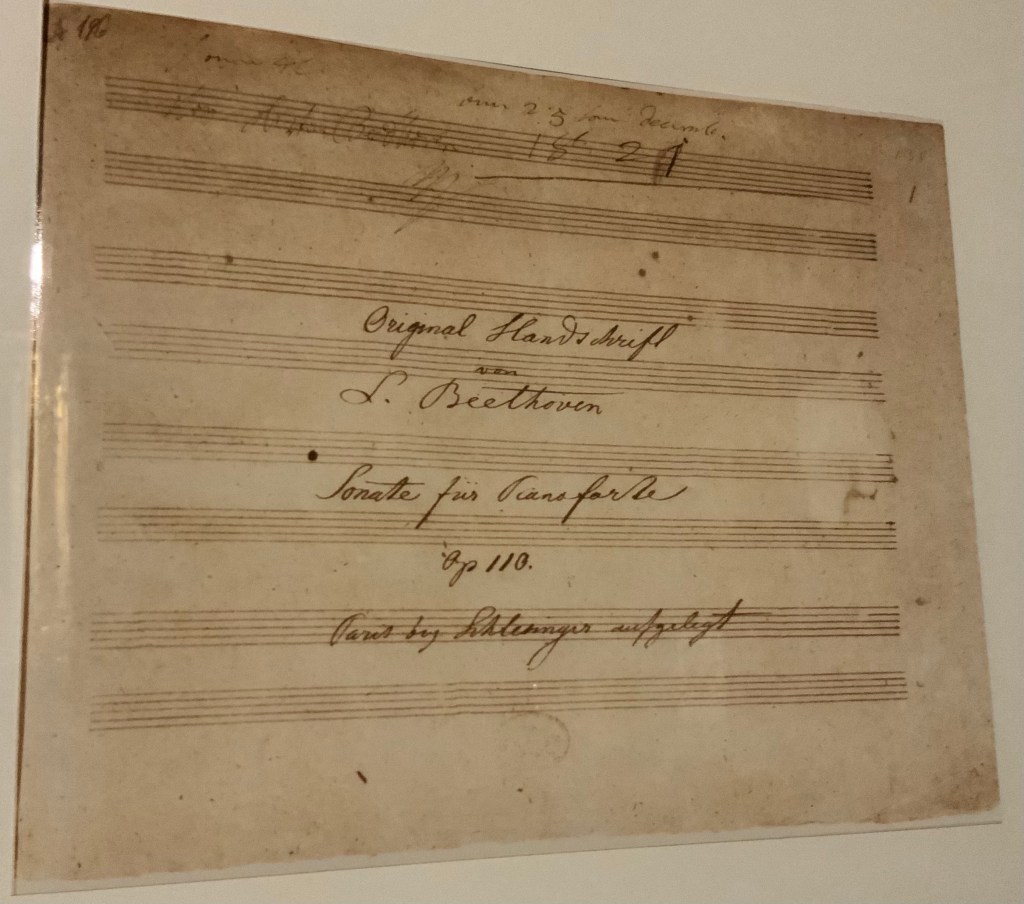 196
am 25ten decemb.
1821
1
Original Handschrift
von
L. Beethoven
Sonate für Pianoforte
Op 110.
Paris bey Schlesinger aufgelegt